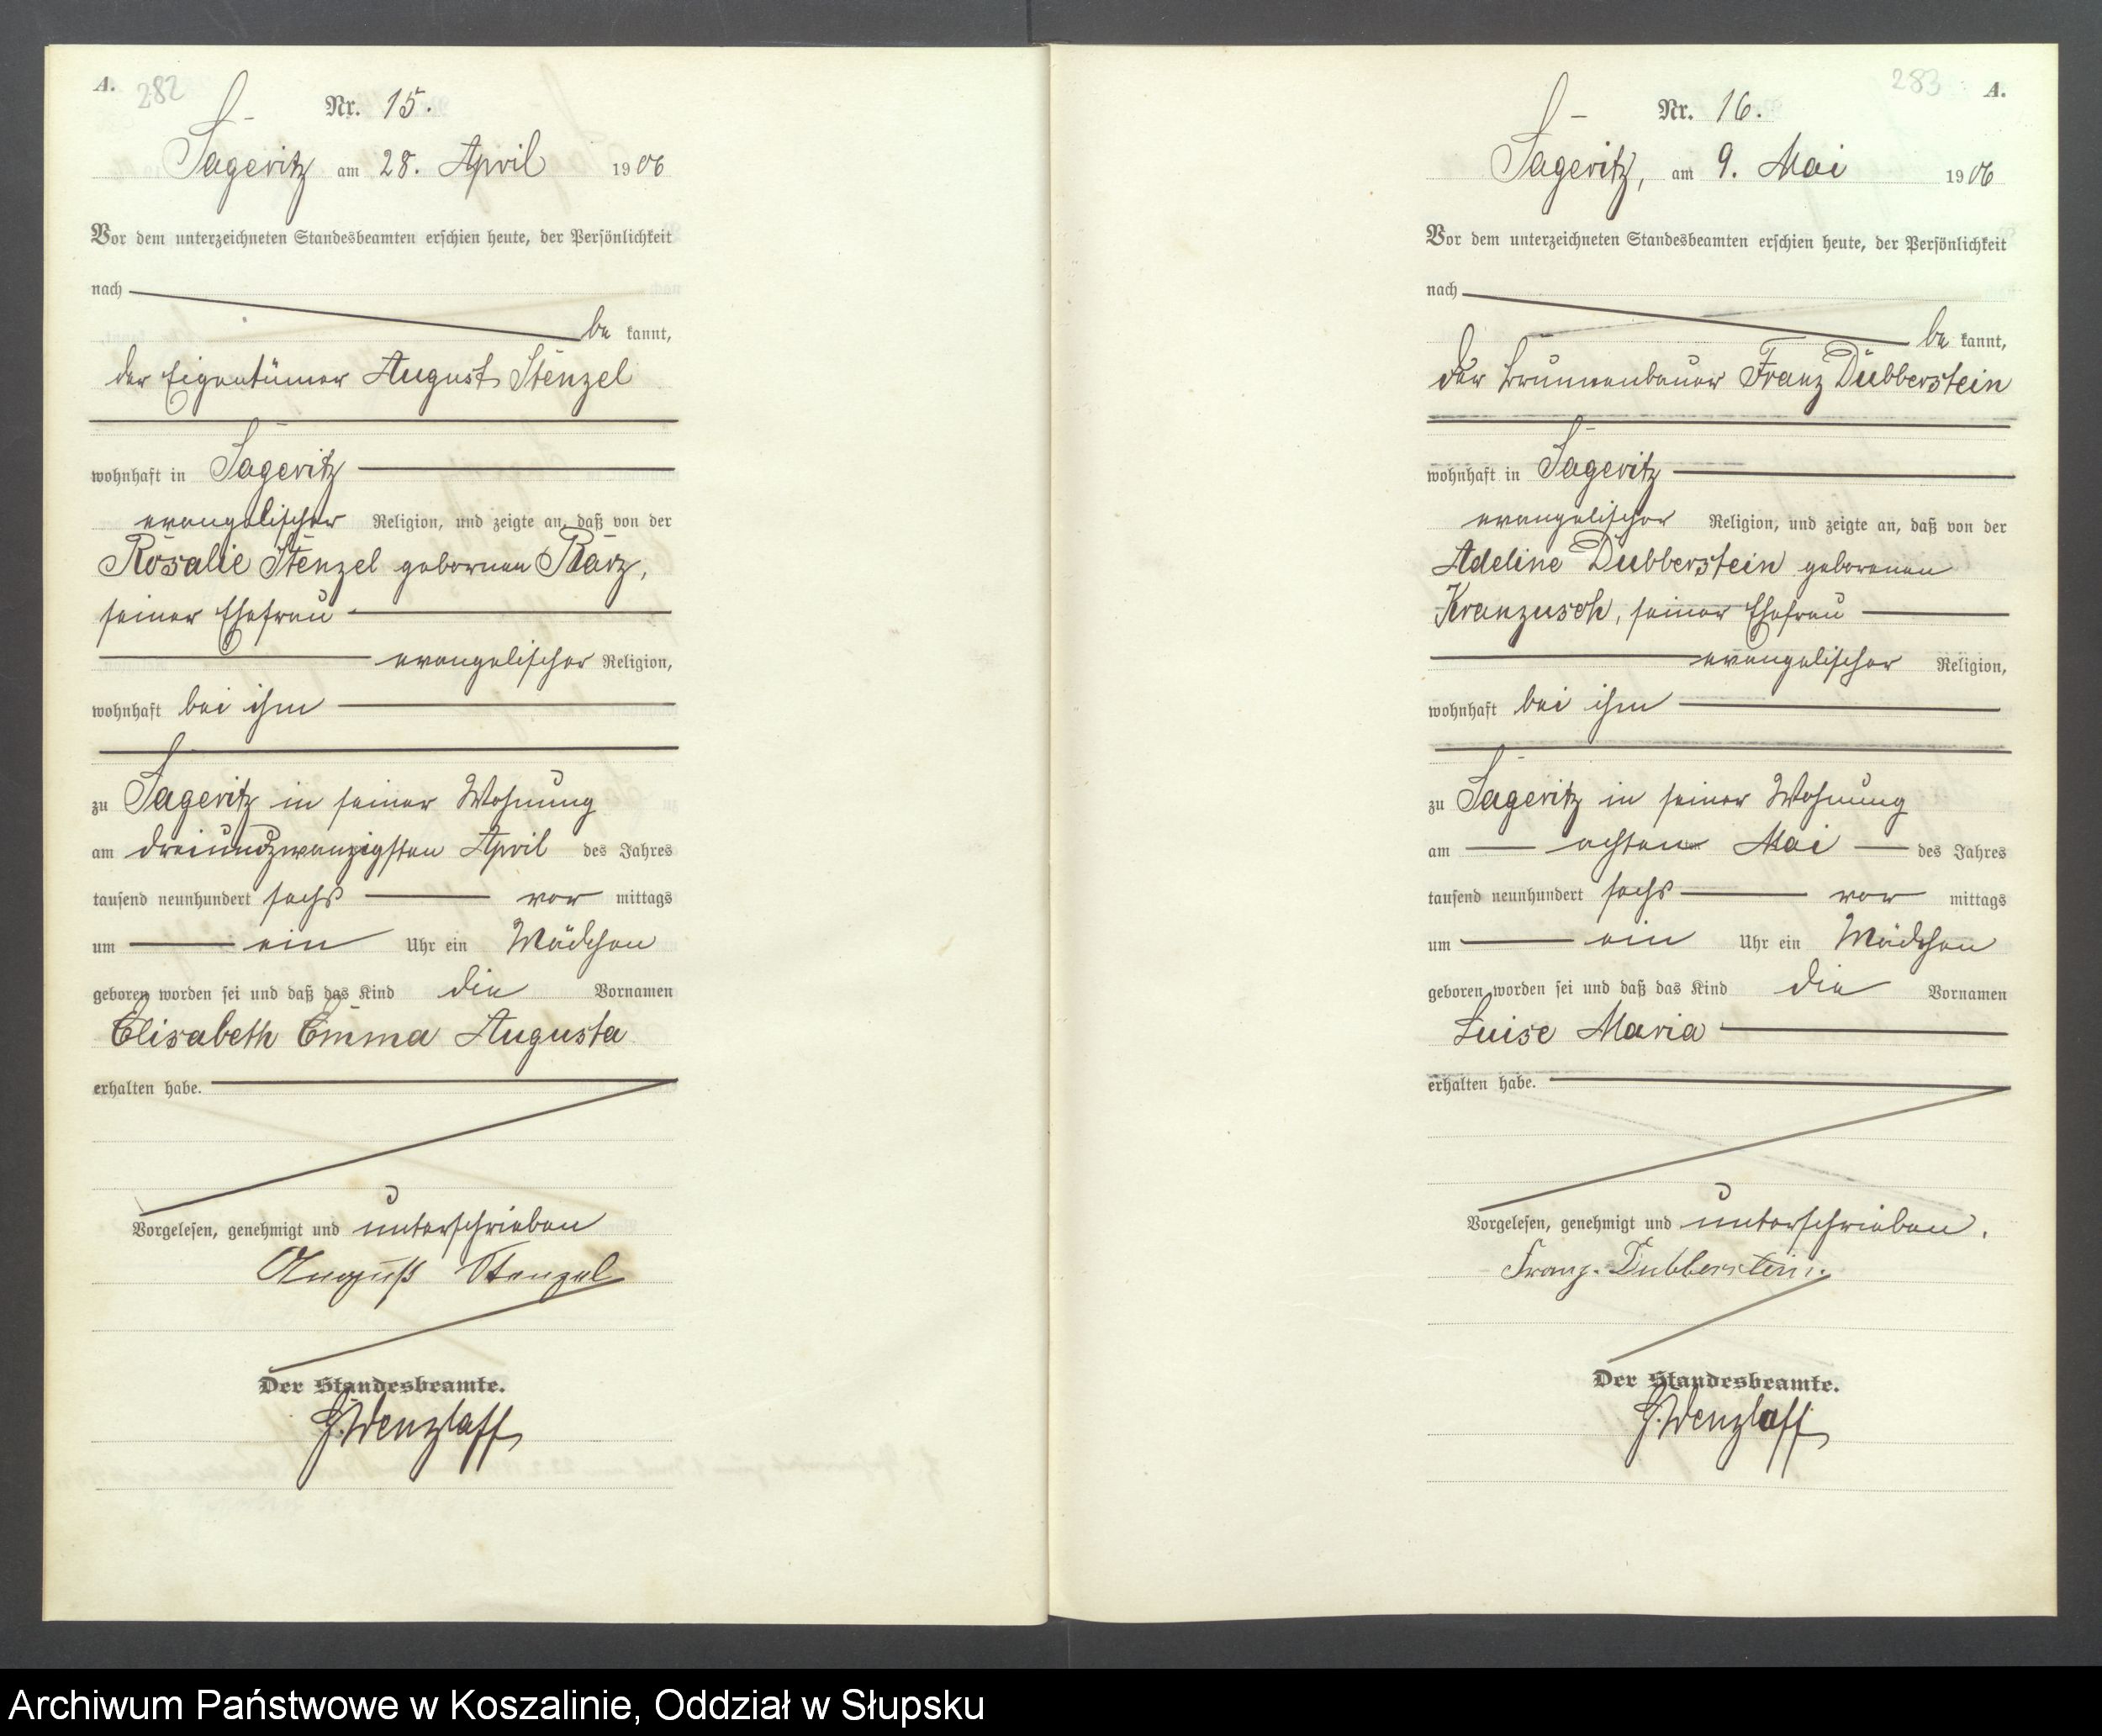 A. 282
Nr. 15.
Sageritz am 28. April 1906
Vor dem unterzeichneten Standesbeamten erschien heute, der Persönlichkeit
nach
be kannt,
der Eigentümer August Stenzel
wohnhaft in Sageritz
evangelischer Religion, und zeigte an, daß von der
Rosalie Stenzel gebornen
seiner Ehefrau
evangelischer Religion,
wohnhaft bei ihm
zu Sageritz in seiner Wohnung
am dreiundzwanzigsten April des Jahres
tausend neunhundert sechs vor mittags
um ein Uhr ein Mädchen
geboren worden sei und daß das Kind die Vornamen
Elisabeth Emma Augusta
erhalten habe.
Vorgelesen, genehmigt und unterschrieben
August Stenzel
Der Standesbeamte.
G. Wenzlaff
283 A.
Nr. 16.
Sageritz, am 9. Mai 1906
Vor dem unterzeichneten Standesbeamten erschien heute, der Persönlichkeit
nach
be kannt,
der Brunnenbauer Franz Dubberstein
wohnhaft in Sageritz
evangelischer Religion, und zeigte an, daß von der
Adeline Dubberstein geborenen
Kranzusch, seiner Ehefrau
evangelischer Religion,
wohnhaft bei ihm
zu Sageritz in seiner Wohnung
am achten Mai des Jahres
tausend neunhundert sechs vor mittags
um ein Uhr ein Mädchen
geboren worden sei und daß das Kind die Vornamen
Luise Maria
erhalten habe.
Vorgelesen, genehmigt und unterschrieben.
Franz Dubberstein.
Der Standesbeamte.
G. Wenzlaff
Archiwum Państwowe w Koszalinie, Oddział w Słupsku